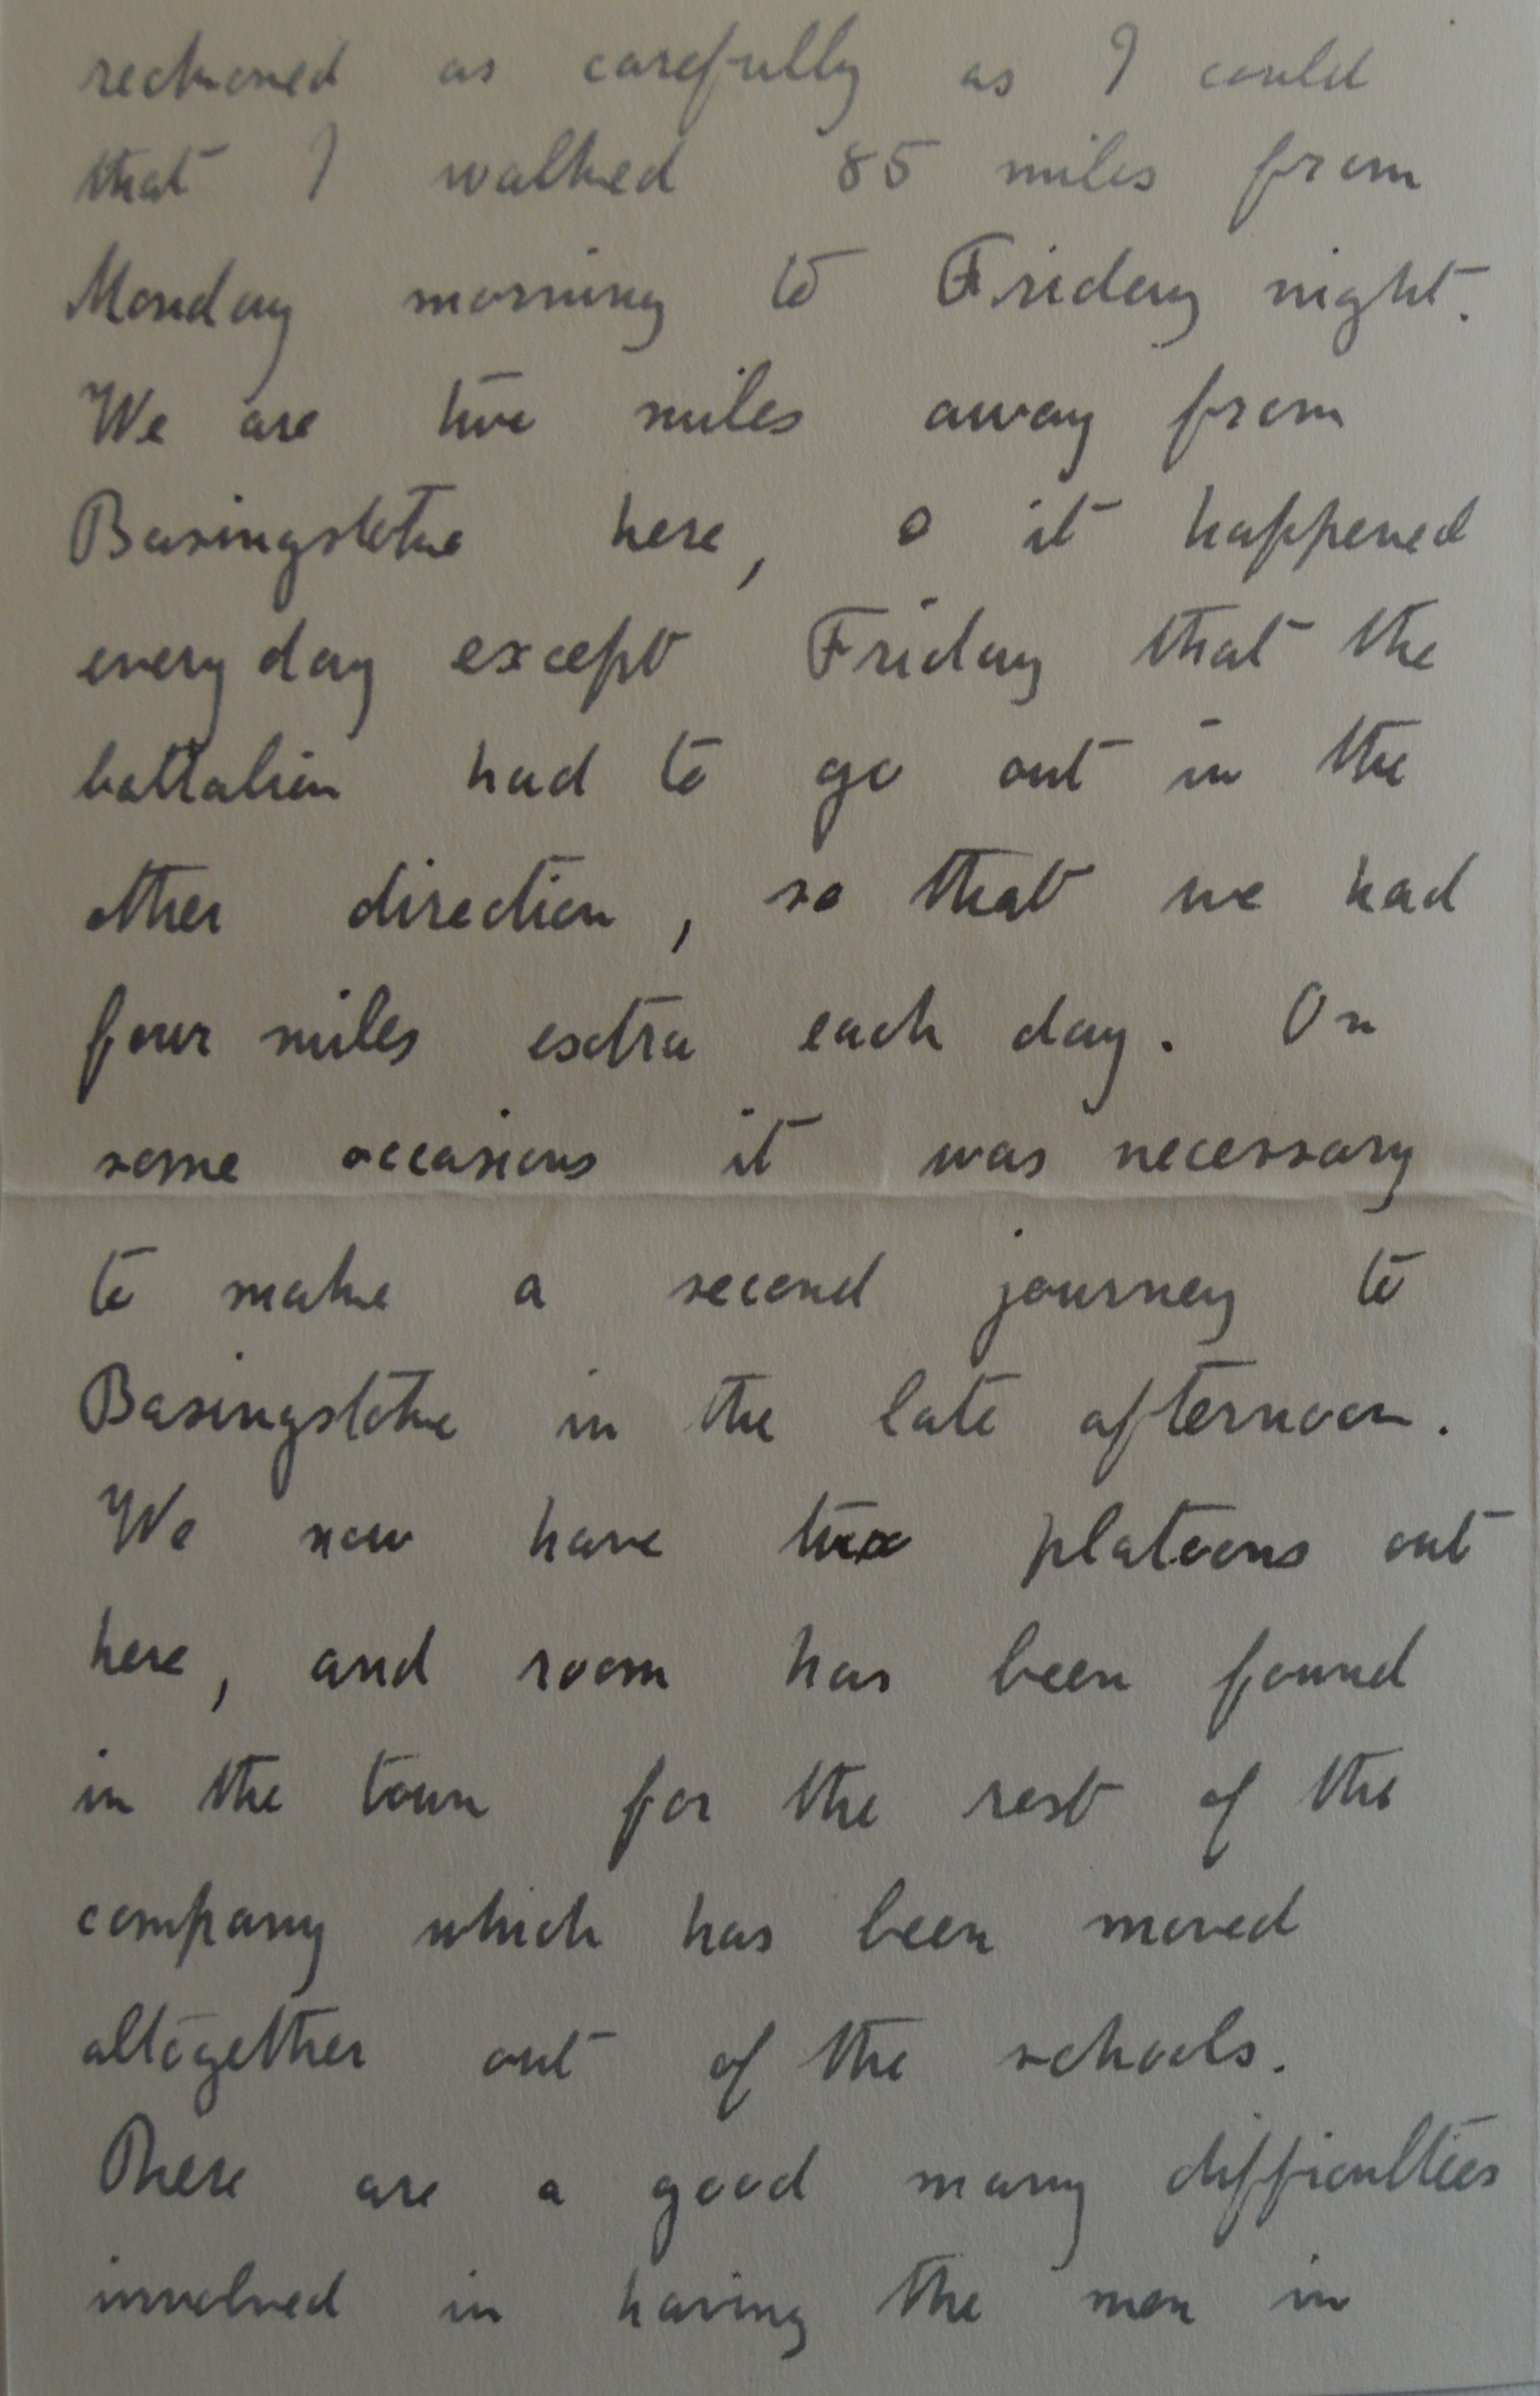 reckoned as carefully as I could
that I walked 85 miles from
Monday morning to Friday night.
We are two miles away from
Basingstoke here, & it happened
every day except Friday that the
battalion had to go out in the
other direction, so that we had
four miles extra each day. On
some occasions it was necessary
to make a second journey to
Basingstoke in the late afternoon.
We now have two platoons out
here, and room has been found
in the town for the rest of the
company which has been moved
altogether out of the schools.
There are a good many difficulties
involved in having the men in